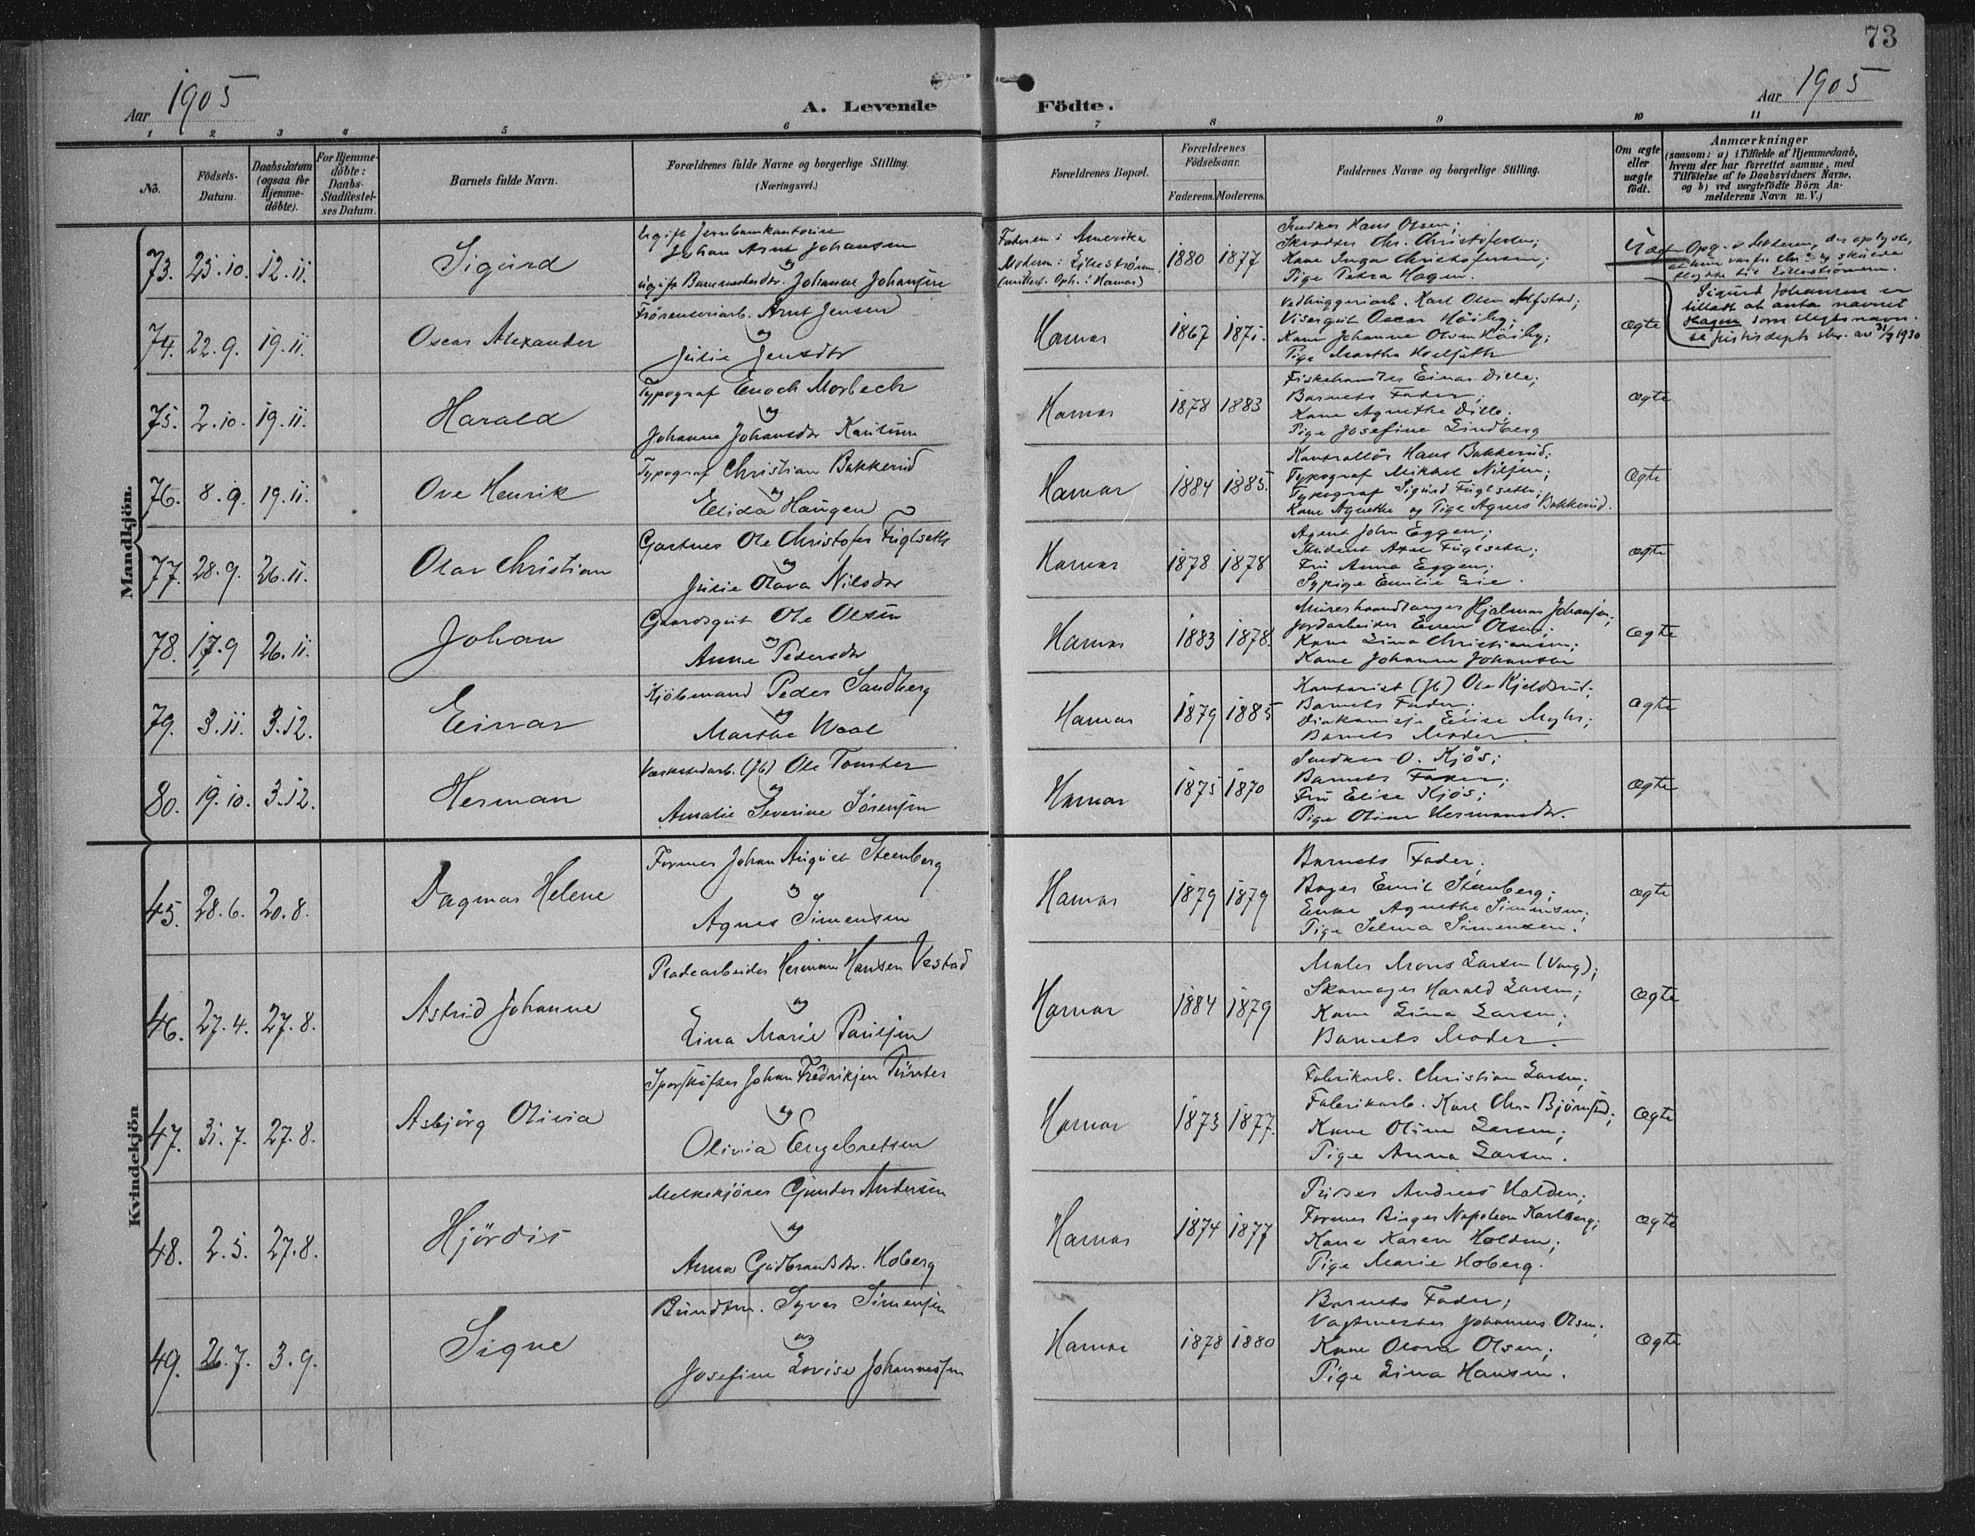 73
Aar 1905
A. Levende
Födte.
Aar 1905
1 2 3 4 5 6 7 8 9 10 11
No.
Födsels-Datum.
Daabsdatum (ogsaa for Hjemme-döbte).
For Hjemme-döbte: Daabs-Stadfæstel-ses Datum.
Barnets fulde Navn.
Forældrenes fulde Navne og borgerlige Stilling.
(Næringsvei.)
Forældrenes Bopæl.
Forældrenes Födselsaar.
Faderens. Moderens.
Faddernes Navne og borgerlige Stilling.
Om ægte eller uægte födt.
Anmærkninger
(saasom: a) i Tilfælde af Hjemmedaab,
hvem der har forrettet samme, med
Tilföielse af to Daabsvidners Navne,
og b) ved uægtefödte Börn An-
melderens Navn m. V.)
Mandkjön.
73. 25.10. 12.11. Sigurd
Johan Arnt Johansen
og
Johanne Johansen
Faderen i Amerika
1880 1877
Snedker Hans Olsen;
Skrædder Chr. Christofersen;
Kone Inga Christofersen;
Pige Petra Hagen.
Uægte
Sigurd Johansen er
tilladt at anta navnet
Hagen som slegtsnavn.
31/7 1930
74. 22.9. 19.11. Oscar Alexander
Arnt Jensen
og
Julie Jensdtr
Hamar
1867
Karl Olsen Alfstad;
Visergut Oscar Höiby;
Kone Johanne Olsen Höiby;
Pige Martha
ægte
75. 2.10. 19.11. Harald
Typograf Enoch Morbech
og
Johanne Johansdtr
Hamar
1878 1883
Fiskehandler Einar Dille;
Barnets Fader;
Kone Agnethe Dille;
Pige Josefine Lindberg
ægte
76. 8.9. 19.11. Ove Henrik
Typograf Christian Bakkerud
og
Elida Haugen
Hamar
1884 1885.
Kontrollör Hans Bakkerud;
Typograf Mikkel Nilsen;
Typograf Sigurd Fuglseth;
Kone Agnethe og Pige Agnes Bakkerud.
ægte
77. 28.9. 26.11. Olav Christian
Gartner Ole Christofer Fuglseth
og
Julie Olava Nilsdtr
Hamar
1878 1878
Agent John Eggen;
Student Axel Fuglseth;
Fru Anna Eggen;
Sypige Emilie Lie.
ægte
78. 17.9 26.11. Johan
Gaardsgut Ole Olsen
og
Anne Pedersdtr
Hamar
1883 1878.
Murerhaandlanger Hjalmar Johansen;
Jordarbeider Even Olsen;
Kone Lina Christiansen;
Kone Johanne Johansen
ægte
79. 3.11. 3.12. Einar
Kjöbmand Peder Sandberg
og
Marthe Waal
Hamar
1879 1885
Kontorist (Jb) Ole Kjeldsrud;
Barnets Fader;
Diakonisse Elise Myhr;
Barnets Moder.
ægte
80. 19.10. 3.12. Herman
Værkstedarb. (Jb) Ole Tomter
og
Amalie Severine Sörensen
Hamar
1875 1870
Snedker O. Kjös;
Barnets Fader;
Fru Elise Kjös;
Pige Oline Hermansdtr.
ægte
Kvindekjön
45. 28.6. 20.8. Dagmar Helene
Former Johan August Steenberg
og
Agnes Simensen
Hamar
1879 1879
Barnets Fader;
Bager Emil Steenberg;
Enke Agnethe Simensen;
Pige Selma Simensen.
ægte
46. 27.4. 27.8. Astrid Johanne
Pladearbeider Herman Hansen Vestad
og
Lina Marie Paulsen
Hamar
1884 1879
Maler Mons Larsen (Vang);
Skomager Harald Larsen;
Kone Lina Larsen;
Barnets Moder.
ægte
47. 31.7. 27.8. Asbjörg Olivia
Sporskifter Johan Fredriksen
og
Olivia Engebretsen
Hamar
1873 1877.
Fabrikarb. Christian Larsen;
Fabrikarb. Karl Chr.
Kone Oline Larsen;
Pige Anna Larsen.
ægte
48. 2.5. 27.8. Hjördis
Melkekjörer Gunder Andersen
og
Anna Gudbrandsdtr. Hoberg
Hamar
1874 1877
Pudser Andreas Holden;
Former Birger Napoleon Karlberg;
Kone Karen Holden;
Pige Marie Hoberg.
ægte
49. 26.7. 3.9. Signe
Bundtm. Syver Simensen
og
Josefine Lovise Johannessen
Hamar
1878 1880
Barnets Fader;
Vagtmester Johannes Olsen;
Kone Olava Olsen;
Pige Lina Hansen.
ægte